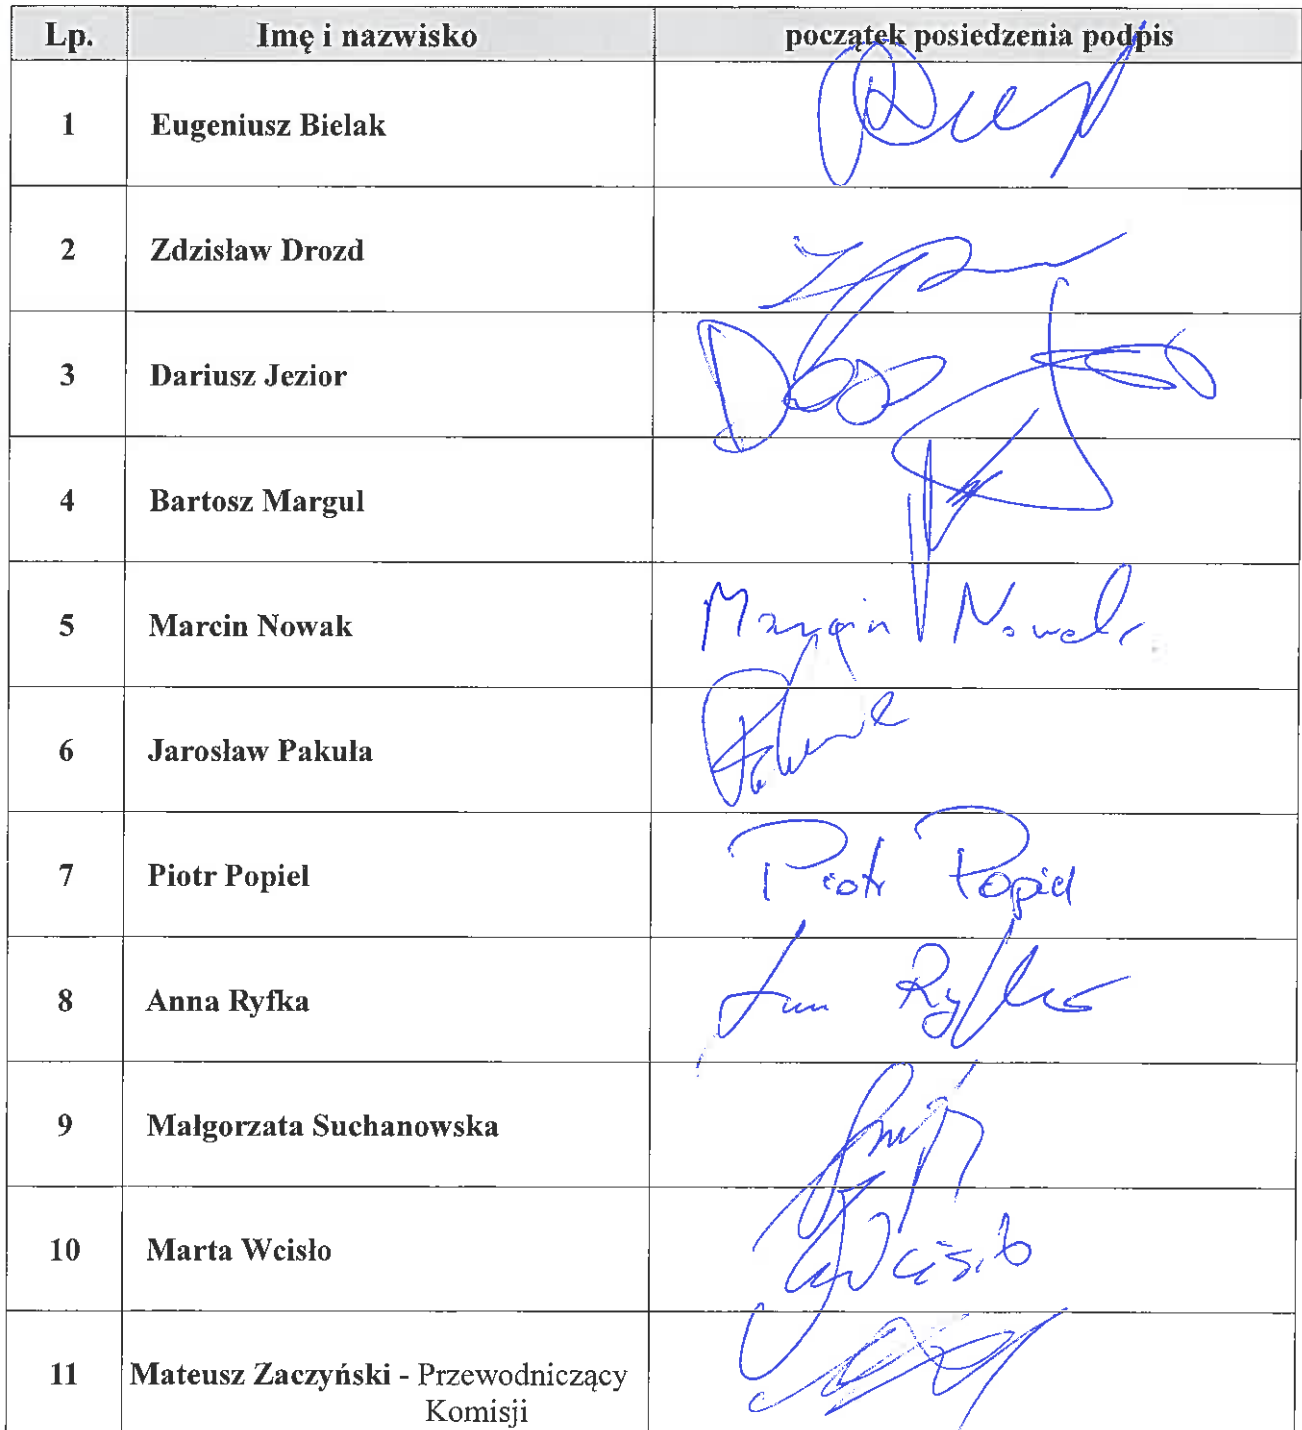 Lp. Imę i nazwisko początek posiedzenia podpis
1 Eugeniusz Bielak
2 Zdzisław Drozd
3 Dariusz Jezior
4 Bartosz Margul
5 Marcin Nowak Marcin Nowak
6 Jarosław Pakuła
7 Piotr Popiel Piotr Popiel
8 Anna Ryfka
9 Małgorzata Suchanowska
10 Marta Wcisło Wcisło
11 Mateusz Zaczyński - Przewodniczący
Komisji